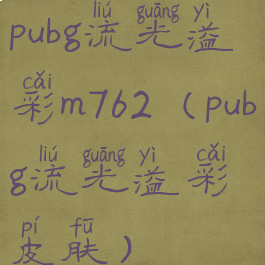 liú guāng yì
pubg流光溢
cǎi
彩m762（pub
liú guāng yì cǎi
g流光溢彩
pí fū
皮肤）